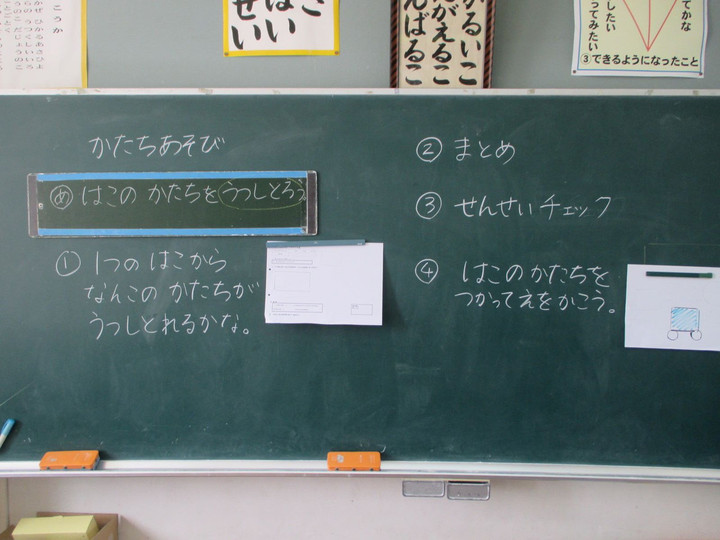 こうか
さ
はい
せい
がえるこ
んばるこ
てかな
したい
ってみたい
③できるようになったこと
かたちあそび
め はこの かたちを うつしとろう。
① 1つの はこから
なんこの かたちが
うつしとれるかな。
② まとめ
③ せんせいチェック
④ はこのかたちを
つかってえをかこう。